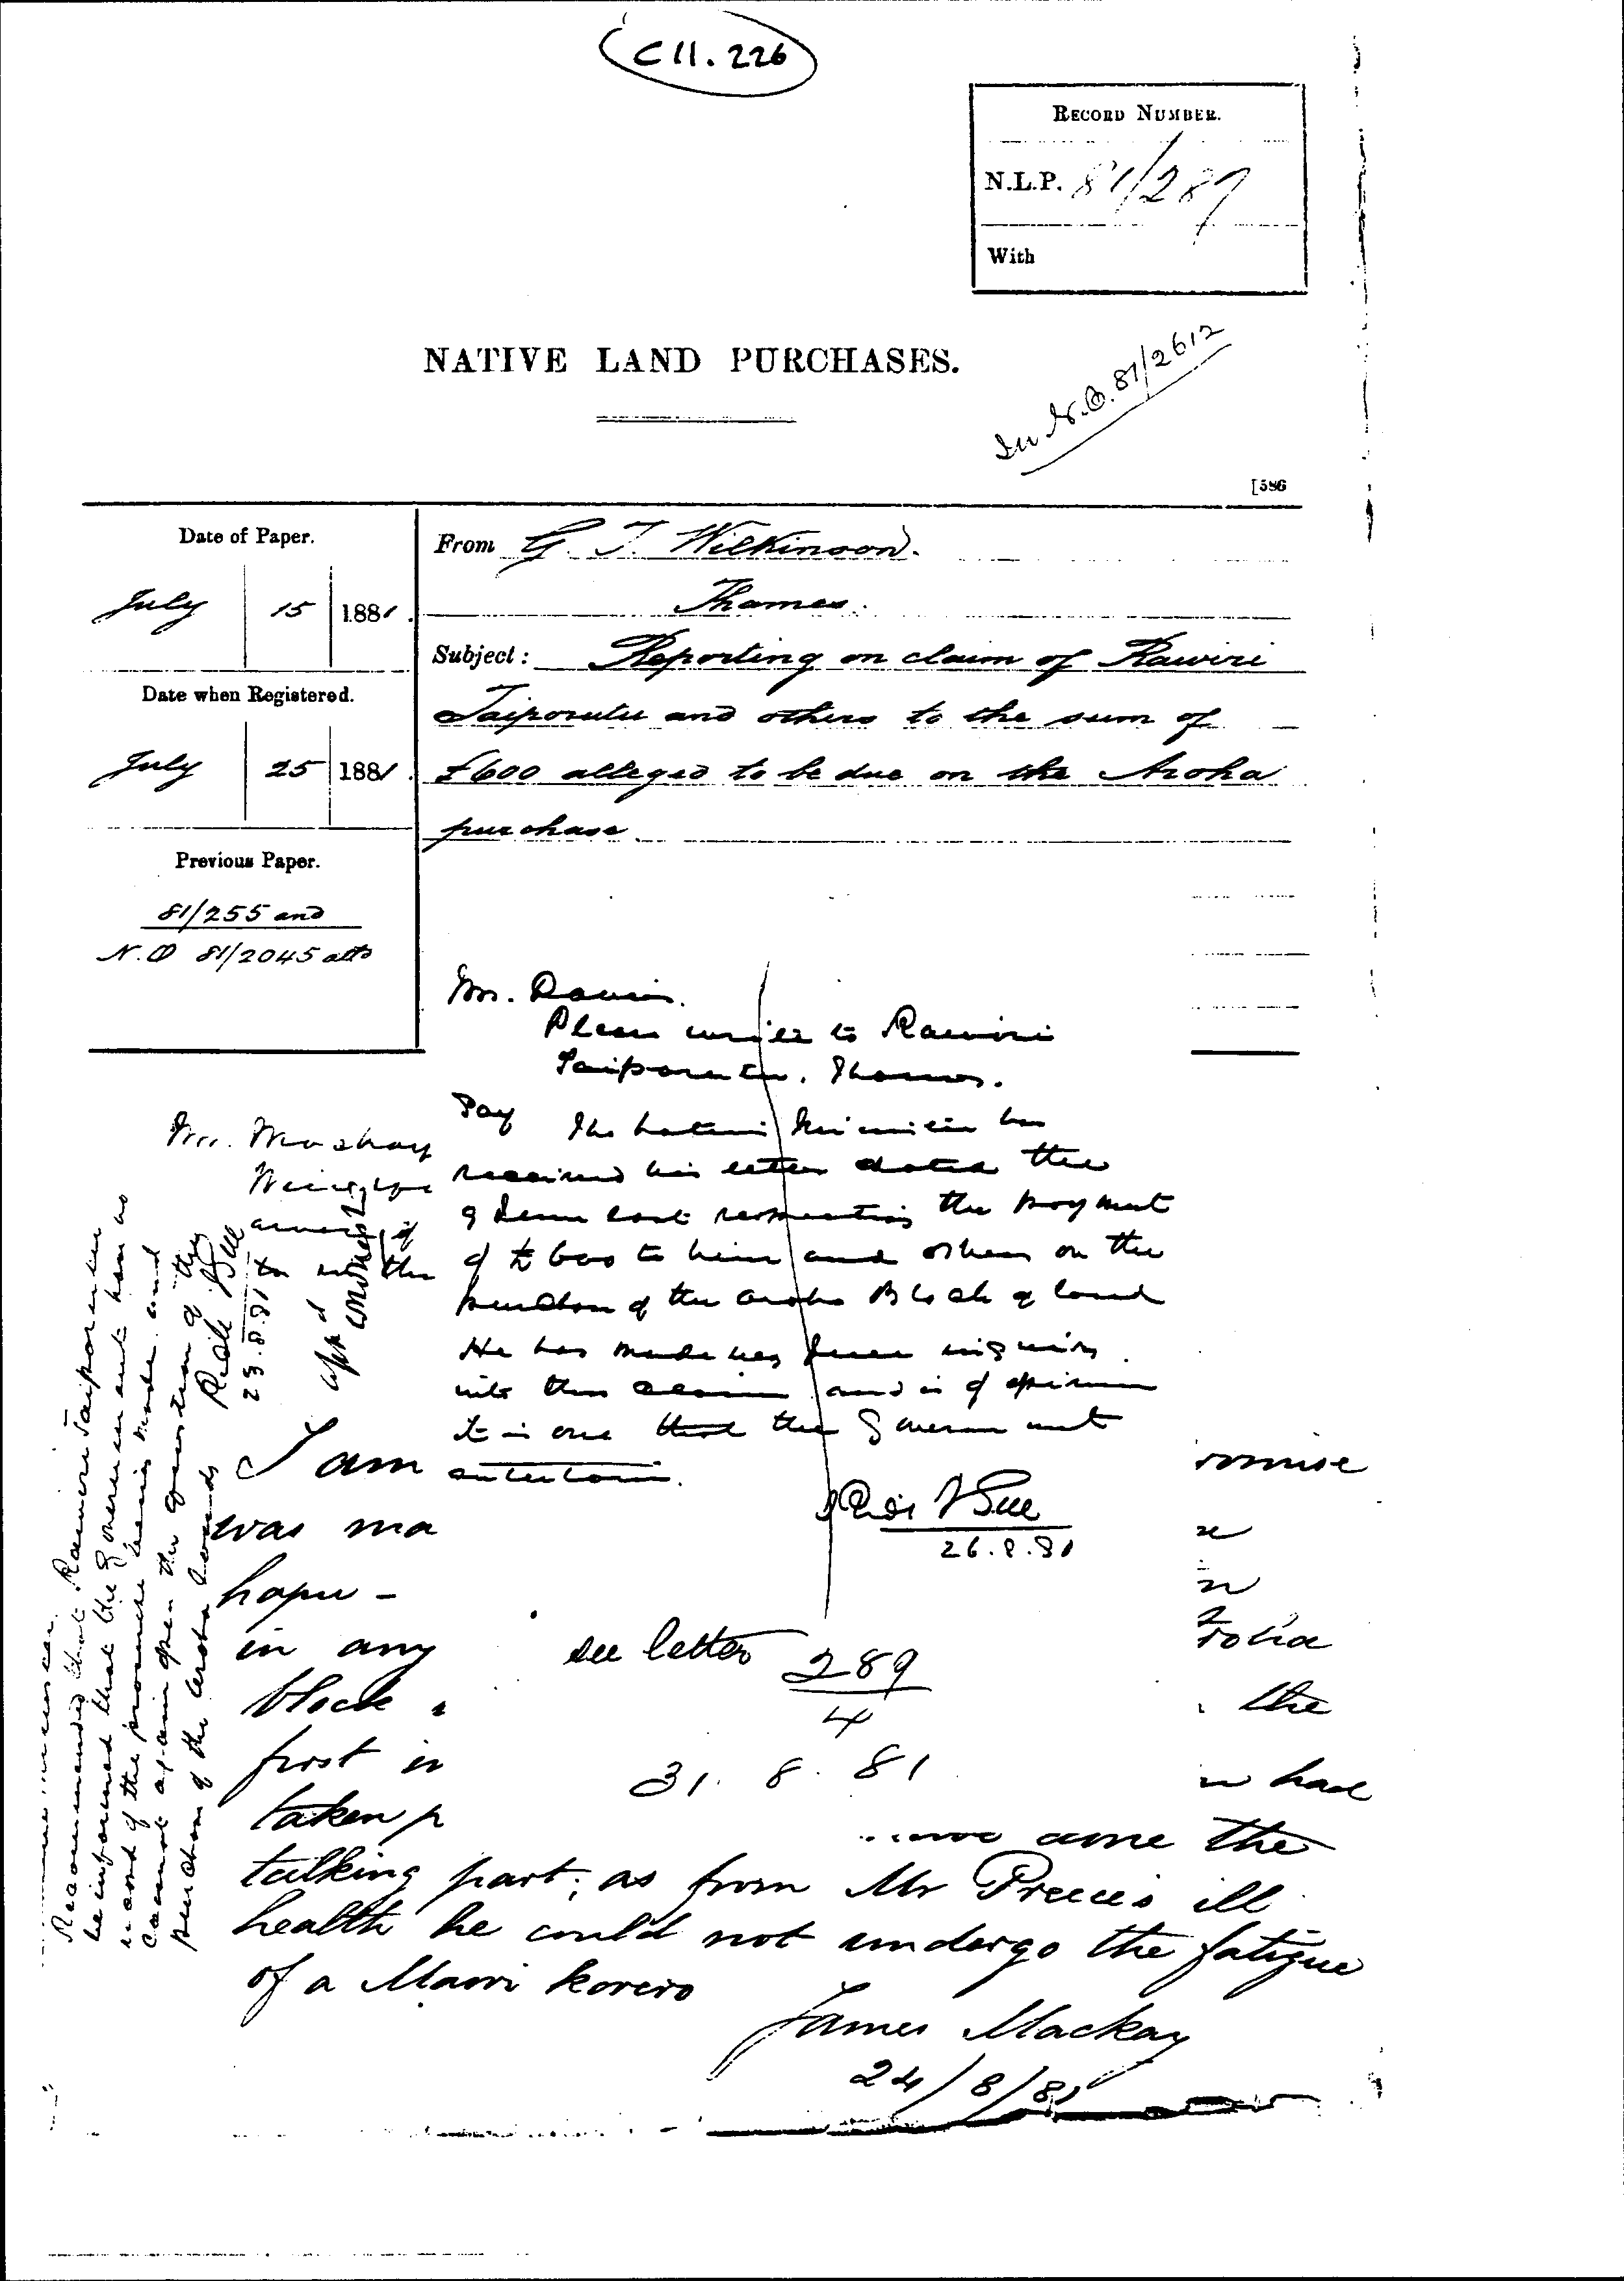 C 11. 226
RECORD NUMBER.
N.L.P. 81/289
With
NATIVE LAND PURCHASES.
In N.O. 81/2612
[586
Date of Paper.
July 15 1881.
Date when Registered.
July 25 1881.
Previous Paper.
81/255 and
N.O 81/2045 atto
From G. T. Wilkinson.
Thames.
Subject: Reporting on claim of Rawiri
Taiporutu and others to the sum of
£600 alleged to be due on the Aroha
purchase
Mr. Davis.
Please write to Rawiri
Taiporutu. Thames.
Say The Native Minister has
received his letter dated the
9 June last respecting the payment
of £600 to him and others on the
purchase of the Aroha Block of land
He has made very full inquiry
into this claim and is of opinion
it is one that the Government
entertain.
26.8.81
see letter 289
4
31. 8. 81
Mr. Mackay
to the
23.8.81
Recommended that Rawiri Taiporutu
be informed that the Government has no
record of the promise being made and
cannot again open the question of the
purchase of the Aroha lands
I am
omise
was ma
hapu -
in any
roha
block
the
first in
n had
taken p
came the
talking part; as from Mr Preece's ill
health he could not undergo the fatigue
of a Maori korero
James Mackay
24/8/81